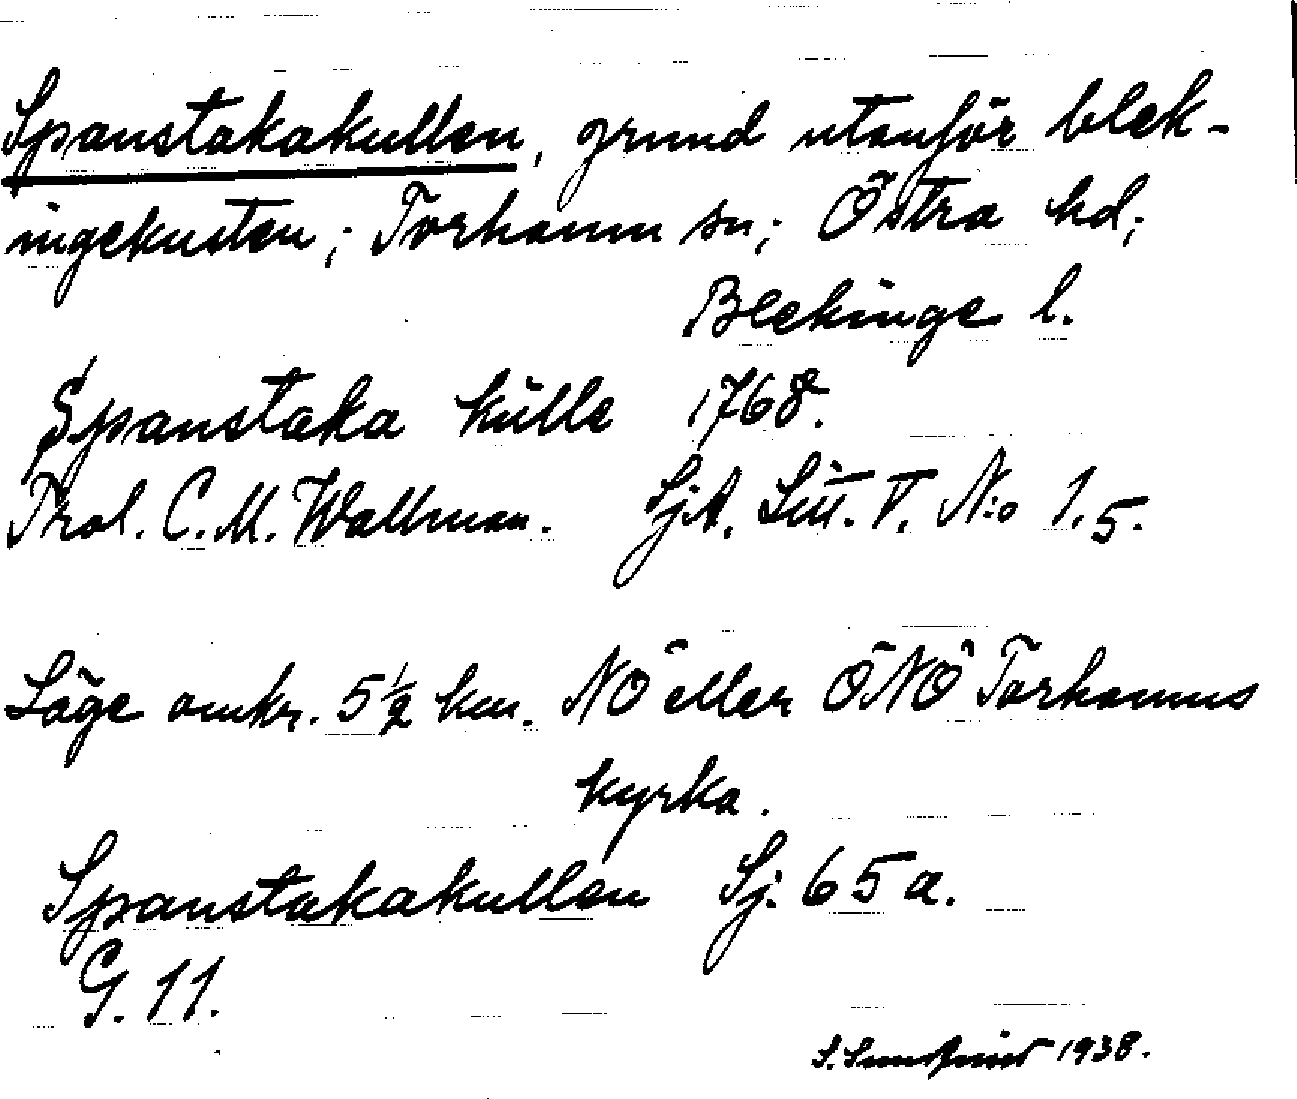 Spanstakakullen, grund utanför blek-
ingekusten; Torhamn sn; Östra hd;
Blekinge l.
Spanstaka kulle 1768.
Prol. C. M. Wallman. SjA. Litt. V. N:o 1.5.
Läge omkr. 5½ km. NO eller ÖNÖ Torhamns
kyrka.
Spanstakakullen Sj. 65 a.
G. 11.
S. Sundquist 1938.